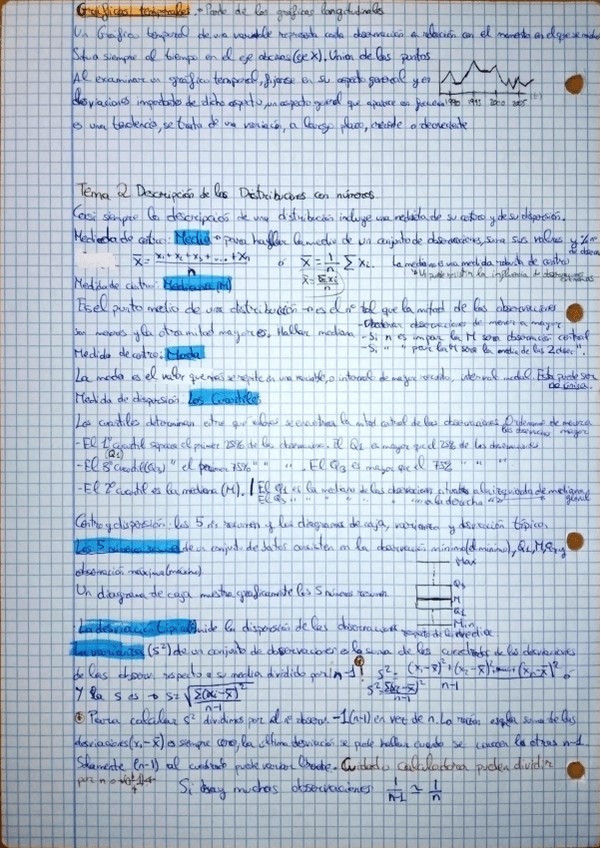 Gráficos temporales. → Parte de las gráficas longitudinales
Un Gráfico temporal de una variable representa cada observación en relación con el momento en el que se
Sitúa siempre el tiempo en el eje abcisas (eje X). Union de los puntos
Al examinar un gráfico temporal, fijarse en su aspecto general y en
desviaciones importantes de dicho aspecto, un aspecto general que aparece con frecuencia
es una tendencia, se trata de una variación, a largo plazo, creciente o decreciente
1990 1995 2000 2005
Tema 2 Descripción de las Distribuciones con números
Casi siempre la descripción de una distribución incluye una medida de su centro y de su dispersión.
Medida de centro: Media → para hallar la media de un conjunto de observaciones, suma sus valores y
x̄ = x₁ + x₂ + x₃ + .... + xₙ / n o x̄ = 1/n ∑ xᵢ La media no es una medida robusta de centro
x̄ = ∑xᵢ / n
Medida de centro: Mediana (M)
Es el punto medio de una distribución → es el nº tal que la mitad de las observaciones
son menores y la otra mitad mayores. Hallar mediana - Ordenar observaciones de menor a mayor
- Si n es impar la M será observación central
- Si " " par la M será la media de las 2 obser "
Medida de centro: Moda
La moda es el valor que más se repite en una variable, o intervalo de mayor recuento, intervalo modal. Esta puede ser
no única.
Medida de dispersión Los Cuartiles
Los cuartiles determinan entre qué valores se encuentra la mitad central de las observaciones. Ordenar de menor a
mayor
- El 1º cuartil separa el primer 25% de las observaciones. El Q1 es mayor que el 25% de las observaciones
(Q1)
- El 3º cuartil (Q3) " el primer 75% " " ". El Q3 es mayor que el 75% " " "
- El 2º cuartil es la mediana (M). / El Q1 es la mediana de las observaciones situadas a la izquierda de mediana
El Q3 " " " " " " a la derecha
Centro y dispersión: los 5 nºs resumen y los diagramas de caja, varianza y desviación típica
Los 5 números resumen de un conjunto de datos consisten en la observación mínima (el mínimo), Q1, M, Q3 y
observación máxima (máximo)
Un diagrama de caja muestra gráficamente los 5 números resumen
Max
Q3
M
Q1
Min
La desviación típica mide la dispersión de las observaciones respecto de la media
La varianza (s²) de un conjunto de observaciones es la suma de los cuadrados de las desviaciones
de las observ. respecto a su media dividido por n-1! s² = (x₁-x̄)² + (x₂-x̄)² + .... + (xₙ-x̄)² / n-1
Y la s es → s = √∑(xᵢ-x̄)² / n-1
s² = ∑(xᵢ-x̄)² / n-1
Para calcular s² dividimos por el nº observ. -1 (n-1) en vez de n. La razón es q la suma de las
desviaciones (xᵢ-x̄) es siempre cero, la última desviación se puede hallar cuando se conocen las otras n-1.
Solamente (n-1) al cuadrado puede variar libremente. Cuidado calculadora pueden dividir
por n o n-1
Si hay muchas observaciones 1/n-1 ≃ 1/n